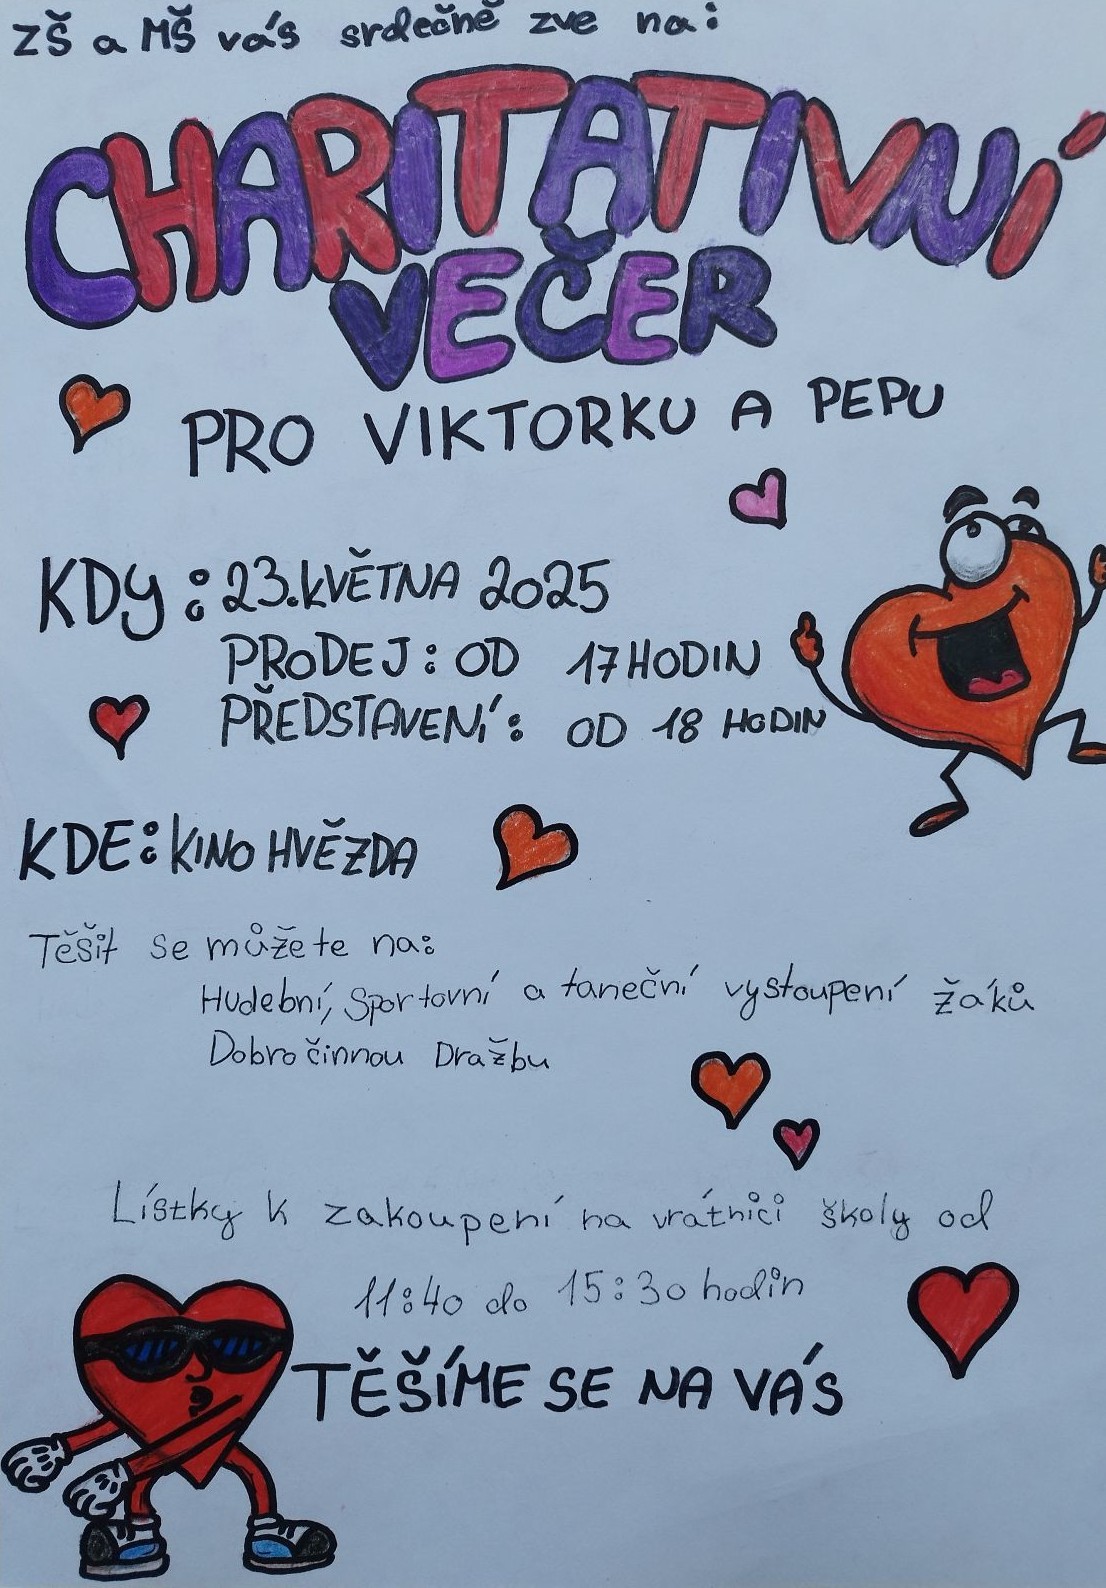 ZŠ a MŠ vás srdečně zve na:
CHARITATIVNÍ
VEČER
PRO VIKTORKU A PEPU
KDY: 23. KVĚTNA 2025
PRODEJ: OD 17 HODIN
PŘEDSTAVENÍ: OD 18 HODIN
KDE: KINO HVĚZDA
Těšit se můžete na:
Hudební, Sportovní a taneční vystoupení žáků
Dobročinnou Dražbu
Lístky k zakoupení na vrátnici školy od
11:40 do 15:30 hodin
TĚŠÍME SE NA VÁS